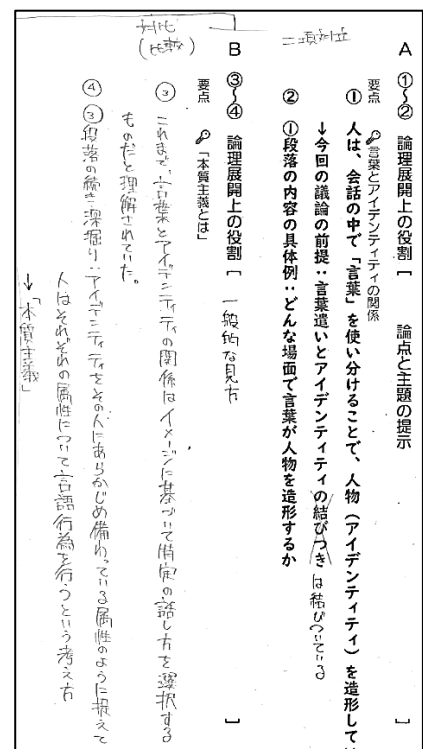 二項対立
A ①〜② 論理展開上の役割 [ 論点と主題の提示 ]
要点 言葉とアイデンティティの関係
① 人は、会話の中で「言葉」を使い分けることで、人物（アイデンティティ）を造形して
↓今回の議論の前提：言葉遣いとアイデンティティの結びつき は結びついている
② ①段落の内容の具体例：どんな場面で言葉が人物を造形するか
対比
(比較)
B ③〜④ 論理展開上の役割 [ 一般的な見方 ]
要点 「本質主義とは」
③ これまで、言葉とアイデンティティの関係はイメージに基づいて特定の話し方を選択する
ものだと理解されていた。
④ ③段落の続き・深掘り：アイデンティティをその人にあらかじめ備わっている属性のように捉えて
人はそれぞれの属性について言語行為を行うという考え方
→「本質主義」